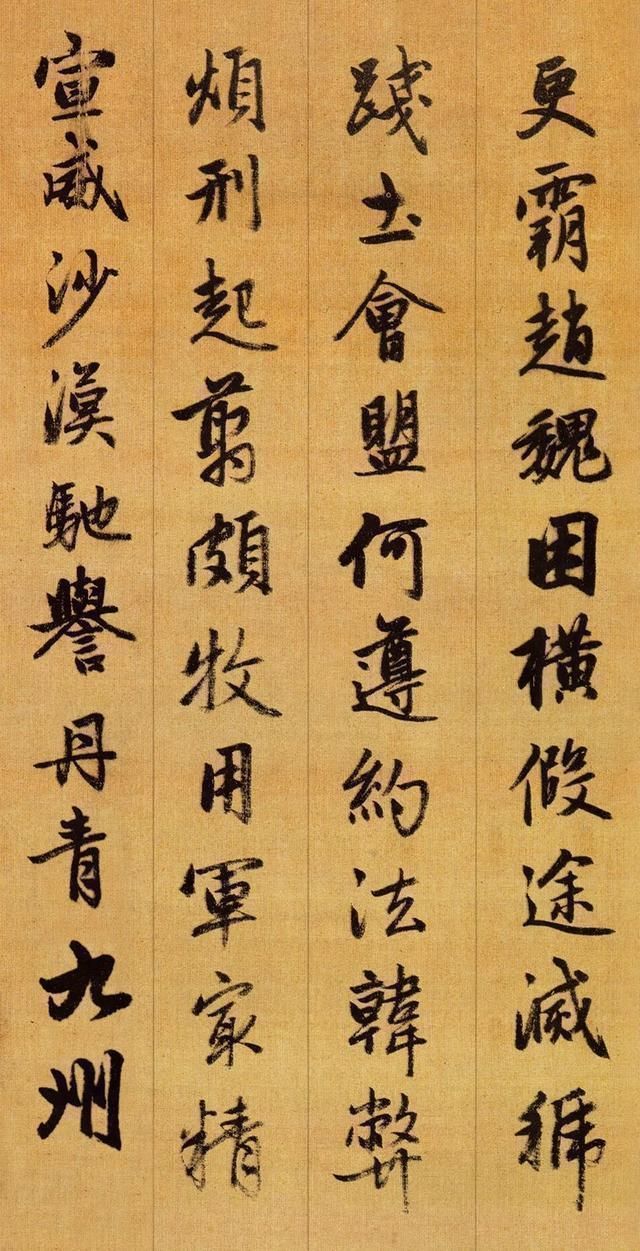 更霸趙魏困橫假途滅虢
踐土會盟何遵約法韓弊
煩刑起翦頗牧用軍最精
宣威沙漠馳譽丹青九州